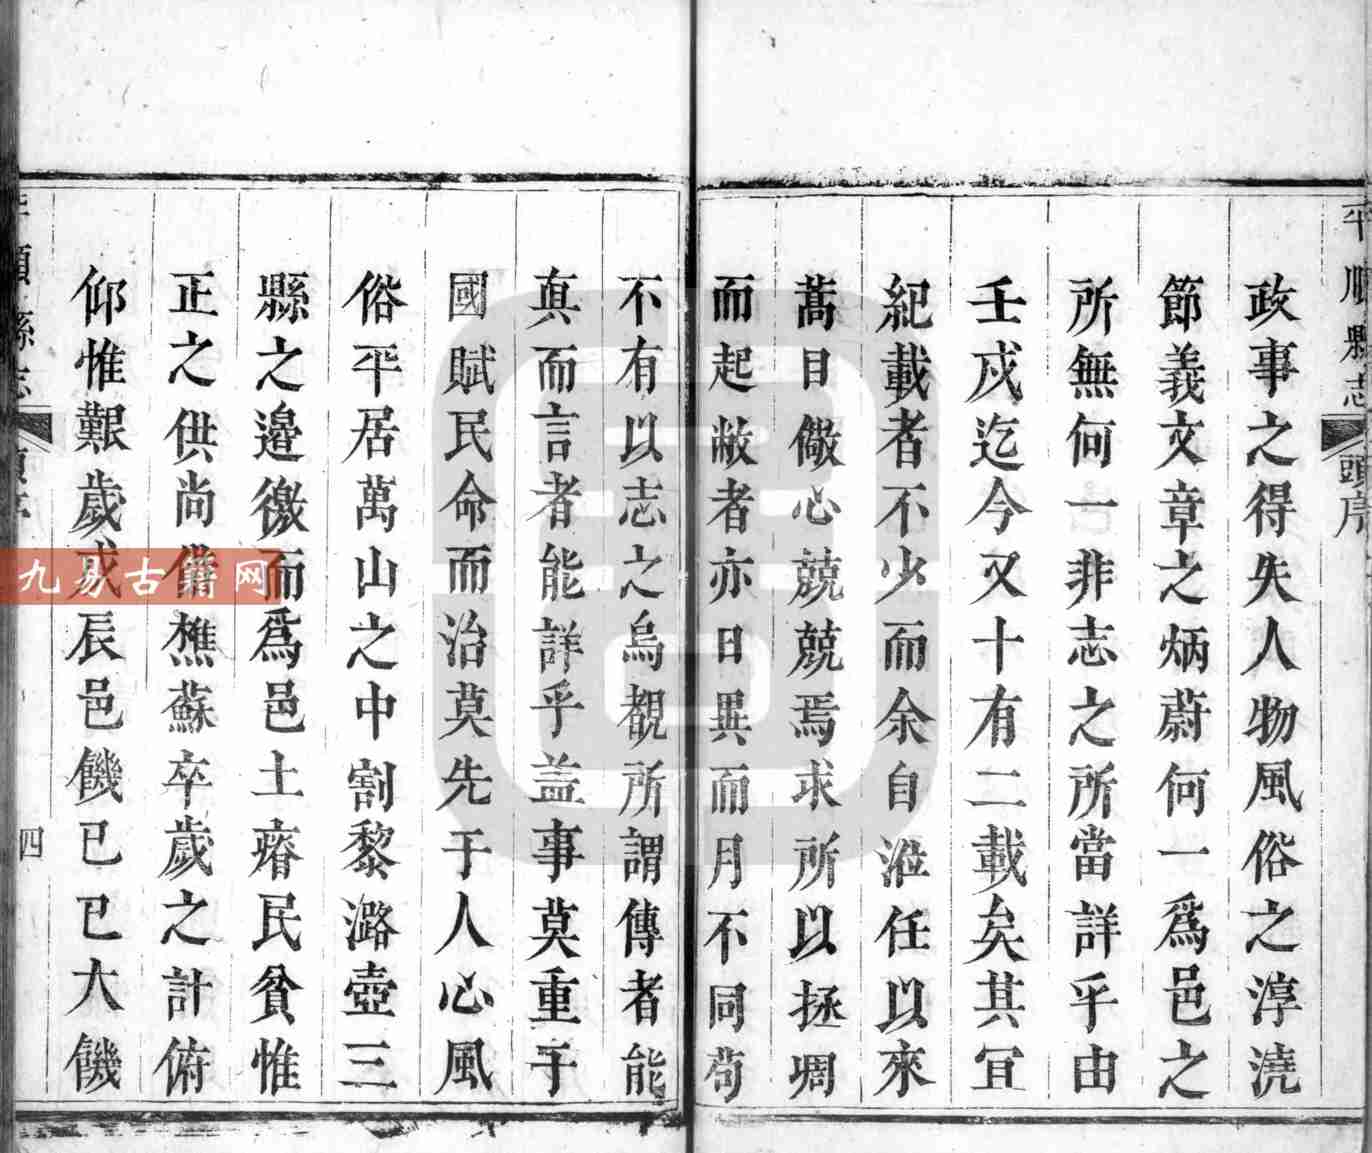 平順縣志
頭序
政事之得失人物風俗之淳澆
節義文章之炳蔚何一爲邑之
所無何一非志之所當詳乎由
壬戌迄今又十有二載矣其宜
紀載者不少而余自涖任以來
蒿目儆心兢兢焉求所以拯凋
而起敝者亦日異而月不同苟
不有以志之烏覩所謂傳者能
真而言者能詳乎益事莫重于
國賦民命而治莫先于人心風
俗平居萬山之中割黎潞壺三
縣之邉徼而爲邑土瘠民貧惟
正之供尚借樵蘇卒歲之計俯
仰惟艱歲戊辰邑饑已巳大饑
順縣志
四
九易古籍网